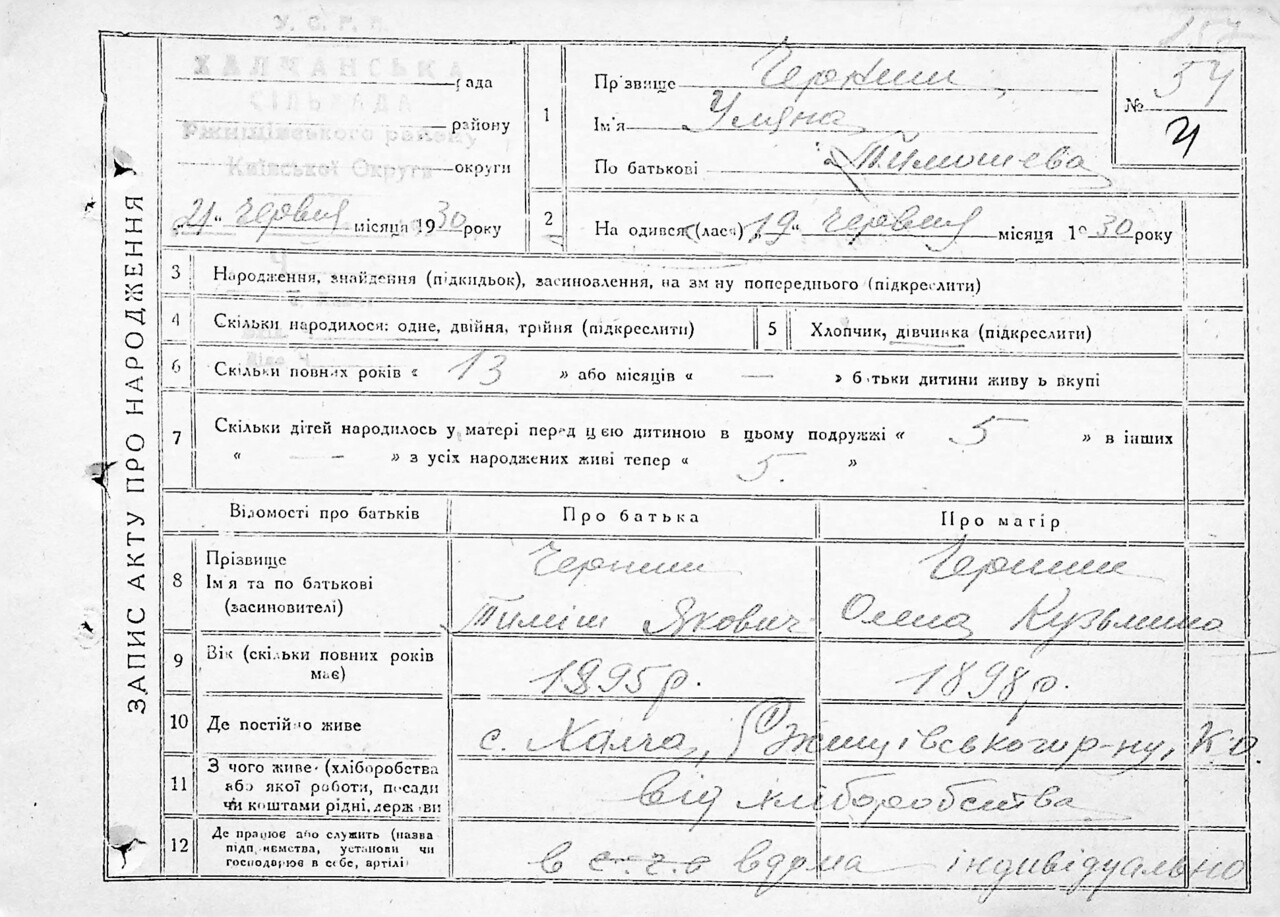 157
У. С. Р. Р.
ХАЛЧАНСЬКА
СІЛЬРАДА
Ржищівського району
Київської Округи
рада
району
округи
21 " червня місяця 1930 року
№ 54
Ч
1 Прізвище Черниш
Ім'я Уляна
По батькові Тимошева
2 На одився (лася) 19 " червня місяця 1930 року
ЗАПИС АКТУ ПРО НАРОДЖЕННЯ
3 Народження, знайдення (підкидьок), засиновлення, на зміну попереднього (підкреслити)
4 Скільки народилося: одне, двійня, трійня (підкреслити)
5 Хлопчик, дівчинка (підкреслити)
6 Скільки повних років « 13 » або місяців « — » батьки дитини живуть вкупі
7 Скільки дітей народилось у матері перед цією дитиною в цьому подружжі « 5 » в інших
« — » з усіх народжених живі тепер « 5. »
Відомості про батьків Про батька Про матір
8 Прізвище Черниш Черниш
Ім'я та по батькові
(засиновителі) Тиміш Якович Олена Кузьмина
9 Вік (скільки повних років
має) 1895 р. 1898 р.
10 Де постійно живе с. Халча, Ржищівського р-ну, К.О.
11 З чого живе (хліборобства
або якої роботи, посади
чи коштами рідні, держави від хліборобства
12 Де працює або служить (назва
підприємства, установи чи
господарює в себе, артілі в с.г.о вдома індивідуально